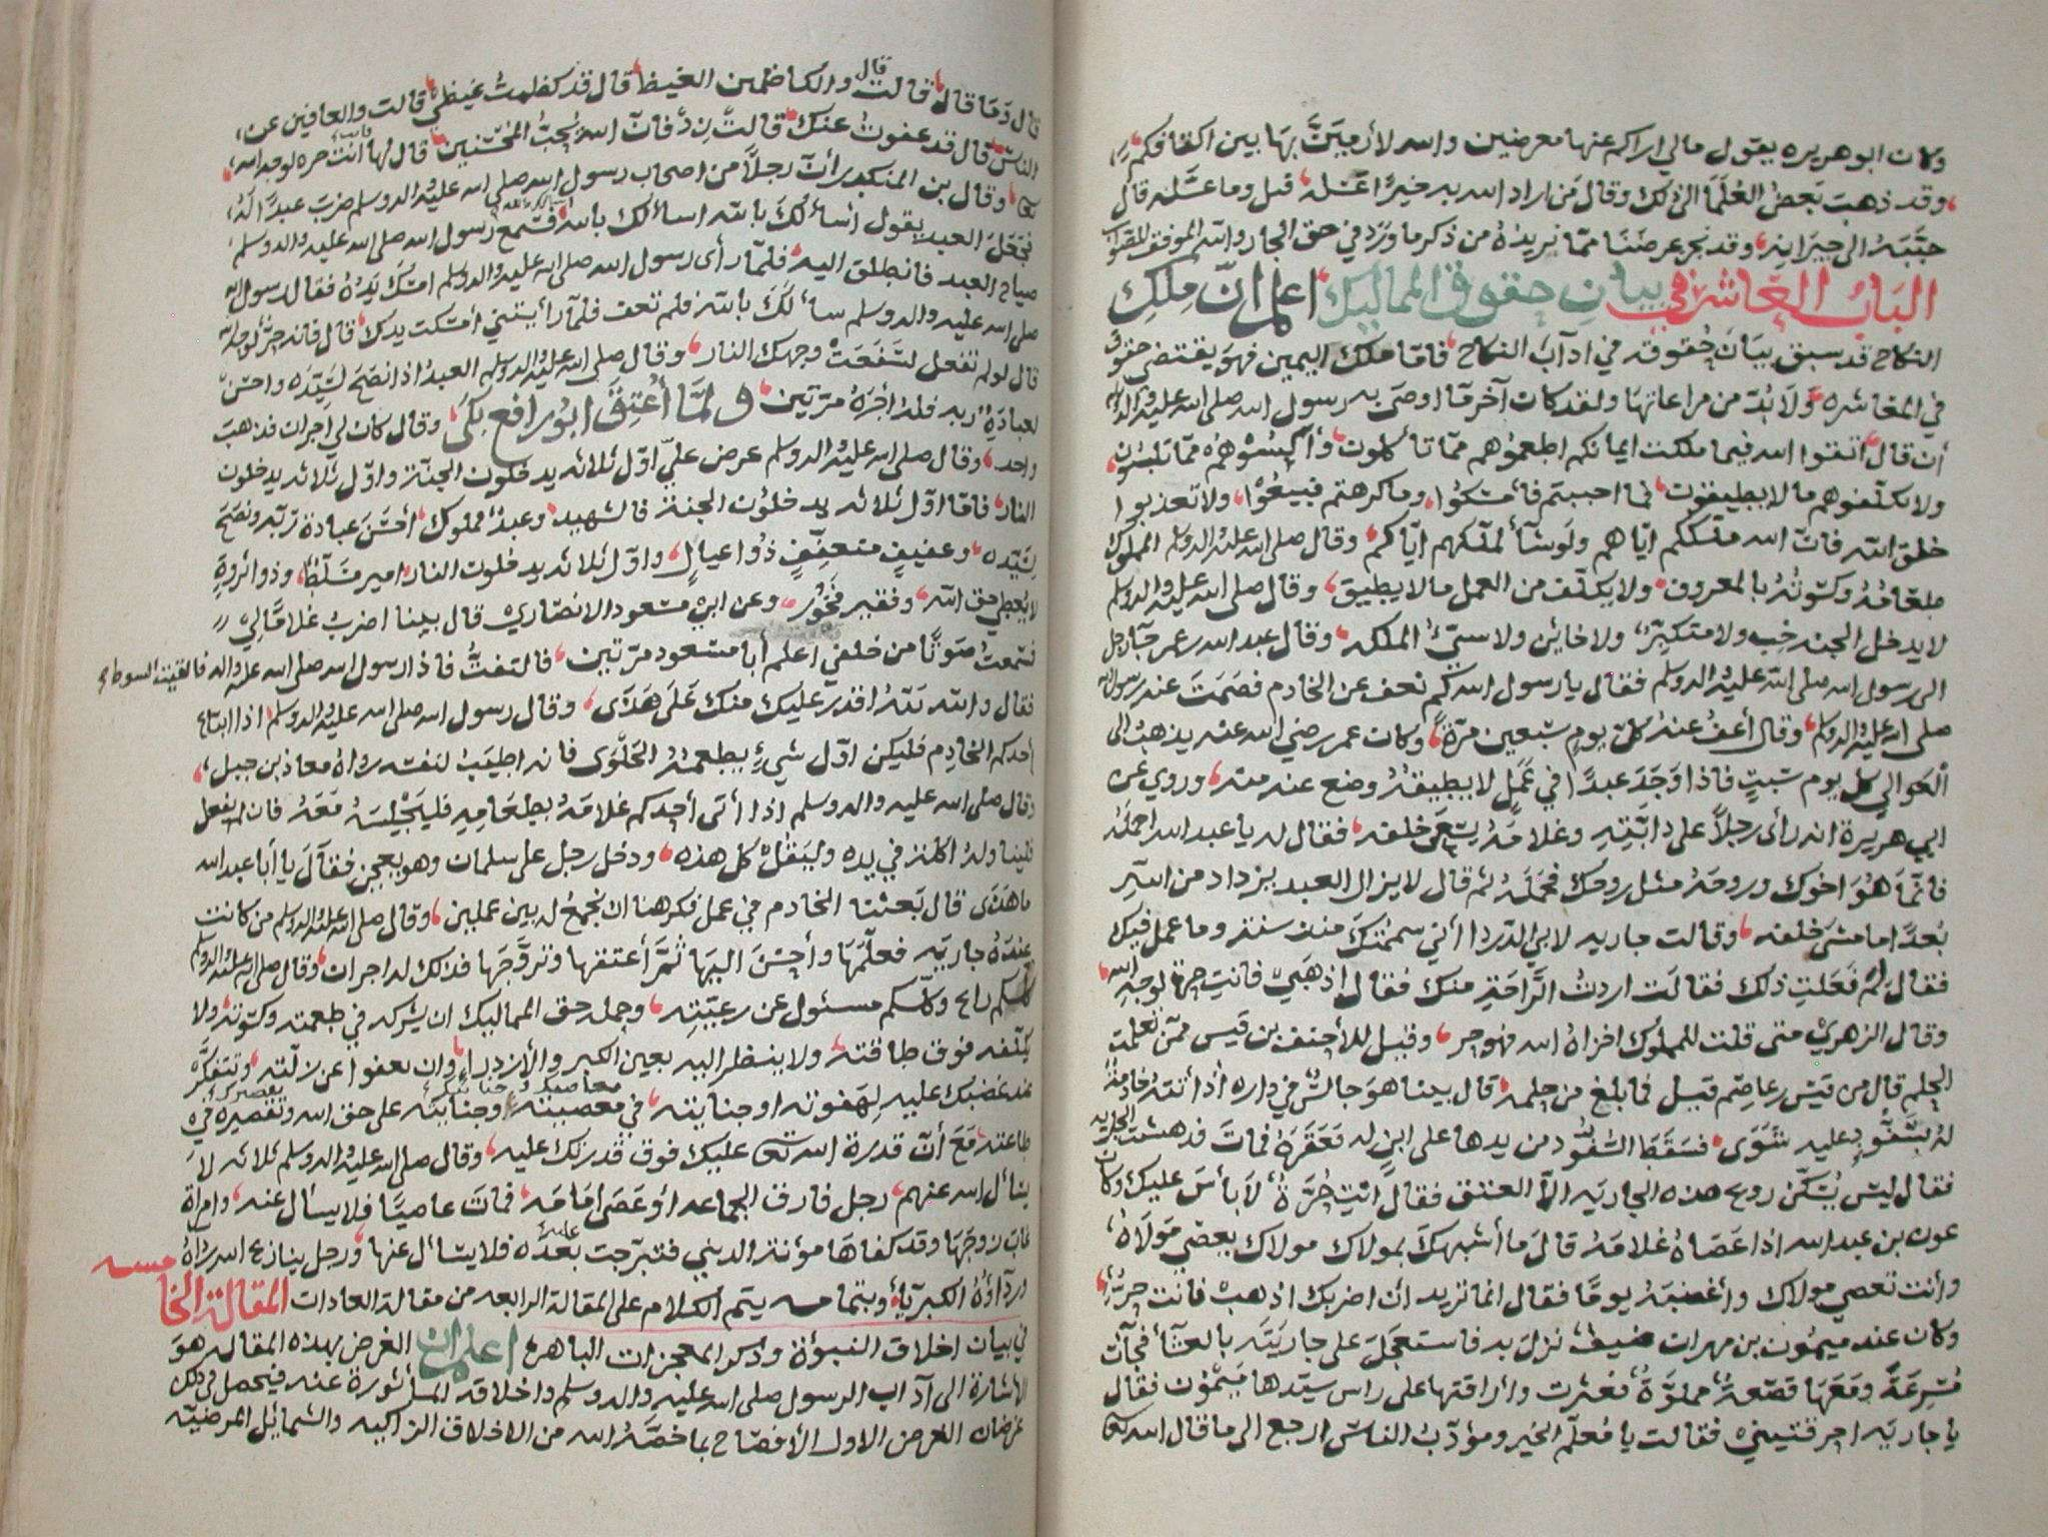 وكان ابو هريره يقول مالي اراكم عنها معرضين والله لأرمينّ بها بين اكتافكم
وقد ذهب بعض العُلمَا الى ذلك وقال من اراد الله به خيرًا عَسّله قيل وما عسّله قال
حبّبَه الى جيرانه وقد نجز غرضنا ممّا نريدُهُ من ذكر ما ورد في حق الجار والله الموفق للصواب
البَابُ العَاشر في بيانِ حقوق المماليك اعلم انّ مِلك
النكاح قد سبق بيَان حقوقه في اداب النكاح فامّا ملك اليمين فهو يقتضي حقوق
في المعاشره ولا بُدّ من مراعاتها ولقد كان آخر ما اوصى به رسول الله صلى الله عليه واله وسلم
أن قال اتقوا الله فيما ملكت ايمانكم اطعموُهم ممّا تأكلون وأكسُوْهُم ممّا تلبسُون
ولا تكلّفوهم ما لا يطيقون فما احببتم فأمسكوُا وما كرهتم فبيعُوْا ولا تعذبوا
خلق الله فانّ الله ملّككم ايّاهم ولَو شَآءَ لملّكهم ايّاكم وقال صلى الله عليه واله وسلم للمملوك
طعَامُهُ وكسوتُهُ بالمعروف ولا يكلّف من العمل ما لا يطيق وقال صلى الله عليه واله وسلم
لا يدخل الجنه خِب ولا متكبّر ولا خاين ولا سيّئ الملكه وقال عبد الله بن عمر جآء رجل
الى رسول الله صلى الله عليه واله وسلم فقال يا رسول الله كم نعف عن الخادم فصَمَتَ عنه رسول الله
صلى الله عليه واله وسلم وقال أعفُ عنهُ كلّ يومٍ سَبعين مَرّةً وكان عمر رضي الله عنه يذهبُ الى
العَوالي كل يوم سَبتٍ فاذا وَجَدَ عبدًا في عَمَلٍ لا يطيقهُ وضع عنه منه وروي عن
ابي هريرة انه رأى رجلاً على دابّتِهِ وغلامَهُ يسعَى خلفه فقال له يا عبد الله احملهُ
فانّما هُوَ اخوك وروحَهُ مثل روحك فحَمَلَهُ ثم قال لا يزال العبد يزداد من الله
بُعدًا ما مُشِيَ خلفه وقالت جاريه لابي الدّردا اني سممتُك منذ سنه وما عمل فيك
فقال لِمَ فَعَلتِ ذلك فقالت اردتُ الرّاحَة منك فقال اذهَبي فانتِ حرة لوجه الله
وقال الزهري متى قلت للمملوك اخزاهُ الله فهو حر وقيل للأحنف بن قيس ممّن تعلمت
الحِلم قال من قيس بن عاصِم قيل فما بلغ من حلمه قال بينا هوَ جالسٌ في داره اذ أتتهُ خادمةٌ
لهُ بسَفّودٍ عليه شَوَى فسَقَطَ السّفّودُ من يدها على ابنٍ له فعَقرَهُ فماتَ فدهشت الجاريه
فقال ليسَ يُسَكّن روع هذه الجاريَه الاّ العتق فقال انتِ حُرّةٌ لا بأسَ عليك وكان
عون بن عبد الله اذا عَصَاهُ غلامَهُ قالَ ما أشبهكَ بمولاك مولاك يعصي مَولاهُ
وأنت تعصي مولاك وأغضبَهُ يومًا فقال انما تريد أن اضربك اذهبْ فانت حرٌّ
وكان عند ميمُون بن مهران ضيفٌ نزلَ به فاستعجَلَ على جاريَتَه بالعشآء فجآءَت
مُسرِعَةً ومَعَهَا قصعَةٌ مملوَّةٌ فعثرت وأراقتها على راس سيّدها مَيْمُون فقال
يا جاريَه احرقتيني فقالت يا مُعلّم الخير ومؤدّبُ الناس ارجع الى ما قال الله تعالى
قال وَمَا قال قالت قال والكاظمين الغيظ قال قد كظمتُ غيظي قالت والعافين عن
الناسِ قال قد عفوتُ عنك قالتْ زِدْ فانّ الله يُحِبُّ المُحْسنين قال لها انت حره لوجه الله
وقال بن المنكدر أنّ رجلاً من اصحاب رسول الله صلى الله عليه واله وسلم ضربَ عبدًا لهُ
فجَعَلَ العبد يقول اسألُكَ بالله اسألك بالله فسَمع رسول الله صلى الله عليه واله وسلم
صياحَ العبد فانطلق اليه فلمّا رأى رسول الله صلى الله عليه واله وسلم امسَكَ يَدَهُ فقال رسول الله
صلى الله عليه واله وسلم سألَكَ بالله فلم تعف فلمّا رأيتني أمسكت يدك قال فانه حرٌّ لوجه الله
قال لو لم تفعل لسَفَعَتْ وجهك النار وقال صلى الله عليه واله وسلم العبدُ اذا نصَحَ لسَيّدَه واحسَنَ
لعبادَةِ ربه فلهُ أجرَهُ مرّتين ولمَّا أُعتِقَ ابُو رافع بَكَى وقال كان لي اجران فذهبَ
واحد وقال صلى الله عليه واله وسلم عرض عليّ اوّل ثلاثه يدخلون الجنّة واوّل ثلاثه يدخلون
النار فامّا اوّل ثلاثه يدخلوُن الجنة فالشهيد وعبدٌ مملوك أحسَنَ عبادة ربّه ونصَحَ
لسَيّده وعفيفٍ متعفِّفٍ ذُوا عيالٍ واوّل ثلاثه يدخلون النار امير مسَلّطٌ وذو اثروةٍ
لا يُعطي حق الله وفقير فَخُور وعن ابي مسعود الانصاري قال بينا اضربُ غلامًا لِي
فسَمعتُ صَوتًا من خلفي اعلم أبا مسعود مرّتين فالتفتُّ فاذا رسول الله صلى الله عليه واله فالقيت السوط
فقال والله للهُ اقدرُ عليك منك عَلَى هَذَى وقال رسول الله صلى الله عليه واله وسلم اذا ابتاع
أحدكم الخادِم فليكن اوّل شيءٍ يطعمهُ الحَلْوَى فانه اطيَبُ لنفسه رواهُ معاذ بن جبل
وقال صلى الله عليه واله وسلم اذا أتى أحدكم غلامَهُ بطعَامِهِ فليَجْلِسَهُ مَعَهُ فان لم يفعل
فليناولهُ اكلة في يده وليَقُلْ كل هذه ودخل رجل على سلمان وهو يعجن فقآلَ يا أبا عبد الله
ما هَذَى قال بَعثنا الخادم في عمل فكرهنا ان نجمعُ له بين عملين وقال صلى الله عليه واله وسلم من كانت
عِندَهُ جاريَه فعلّمَهَا وأحسَنَ اليهَا ثمّ أعتقها وتزوَّجَها فذلك له اجران وقال صلى الله عليه واله وسلم
كلّكم راع وكلّكم مسئول عن رعيّته وجمله حق المماليك ان يشركه في طعمته وكسوته ولا
يكلّفه فوق طاقته ولا ينظر اليه بعين الكبر والأزدراءِ وان يعفوا عن زلّته ويتفكّر
عند غضبك عليه لِهَفوته او جنايته في معصيته وجنايته على حق الله وتقصيره في
معاصيك وجنايتك
تقصيرك
طاعته مَعَ أنّ قدرة الله تعالى عليك فوق قدرتك عليه وقال صلى الله عليه واله وسلم ثلاثه لاَ
يسأل الله عنهم رجل فارق الجماعه أوعَصَى امَامَه فماتَ عاصيًا فلا يسأل عنه وامراة
غاب زوجَهَا وقد كفاهَا مؤنة الديني فتبرّجت بعده فلا يسأل عنها ورجل ينازع الله ردآهُ
وردآؤهُ الكبرياء وبتمامه يتم الكلام على المقالة الرابعه من مقالة العادات المقالة الخامسه
في بيان اخلاق النبوة وذكر المعجزات الباهره اعلم ان الغرض بهذه المقاله هوَ
الأشارة الى آداب الرسول صلى الله عليه واله وسلم واخلاقه المأثورة عنه فيحصل في ذلك
غرضان الغرض الاول الأفصاح بما خصّهُ الله من الاخلاق الزاكيه والشمائل المرضيّه